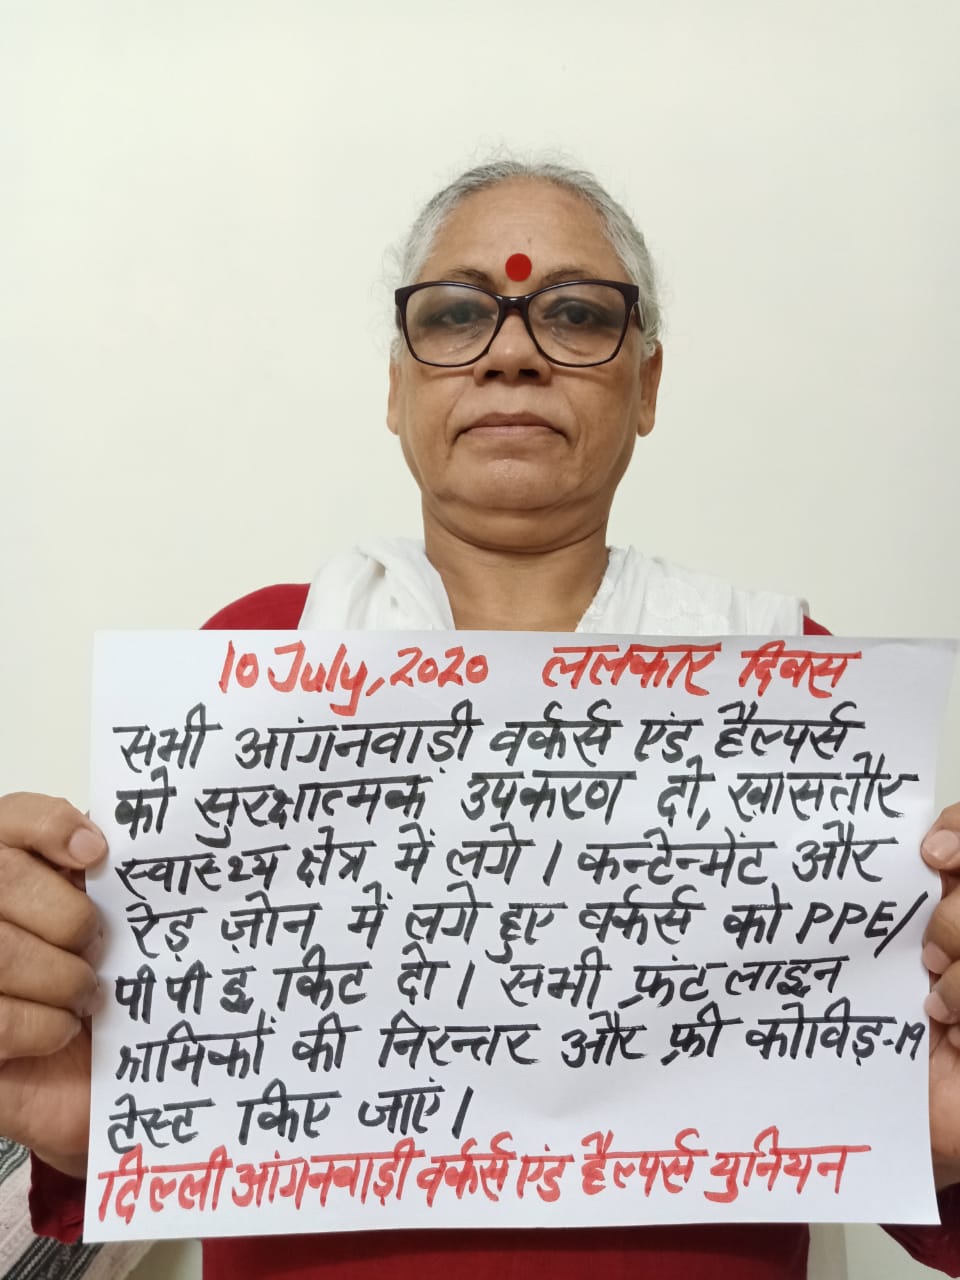 10 July, 2020 ललकार दिवस
सभी आंगनवाड़ी वर्कर्स एंड हैल्पर्स
को सुरक्षात्मक उपकरण दो, खासतौर
स्वास्थ्य क्षेत्र में लगे । कन्टेन्मेंट और
रेड़ ज़ोन में लगे हुए वर्कर्स को PPE/
पी पी इ किट दो । सभी फ्रंट लाइन
श्रामिकों की निरन्तर और फ़्री कोविड़-19
टेस्ट किए जाएं ।
दिल्ली आंगनवाड़ी वर्कर्स एंड हैल्पर्स युनियन